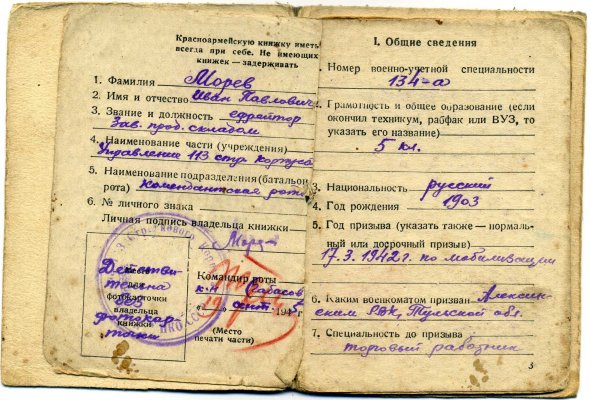 Красноармейскую книжку иметь
всегда при себе. Не имеющих
книжек — задерживать
1. Фамилия Морев
2. Имя и отчество Иван Павлович
3. Звание и должность ефрейтор
Зав. прод. складом
4. Наименование части (учреждения)
Управление 113 стр. корпуса
5. Наименование подразделения (батальон,
рота) Комендантская рота
6. № личного знака
Личная подпись владельца книжки
Командир роты
к-н
сент. 194
(Место
печати части)
Действи-
тельна
без
фотокар-
точки
фотокарточки
владельца
книжки
НКО-СССР
I. Общие сведения
Номер военно-учетной специальности
134-а
1. Грамотность и общее образование (если
окончил техникум, рабфак или ВУЗ, то
указать его название)
5 кл.
3. Национальность русский
4. Год рождения 1903
5. Год призыва (указать также — нормаль-
ный или досрочный призыв)
17.3.1942 г. по мобилизации
6. Каким военкоматом призван Алексин-
ским РВК, Тульской обл.
7. Специальность до призыва
торговый работник
3